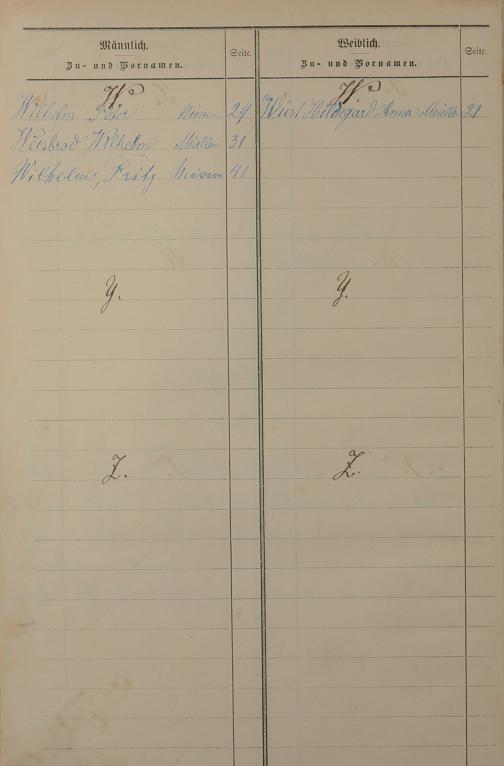 Männlich.
Zu- und Vornamen.
Seite.
W.
Wilhelm Peter 29
Weisbrod Wilhelm Müller 31
Wilhelm, Fritz 41
Y.
Z.
Weiblich.
Zu- und Vornamen.
Seite.
W.
Wüst Hildegard Anna Müller 21
Y.
Z.